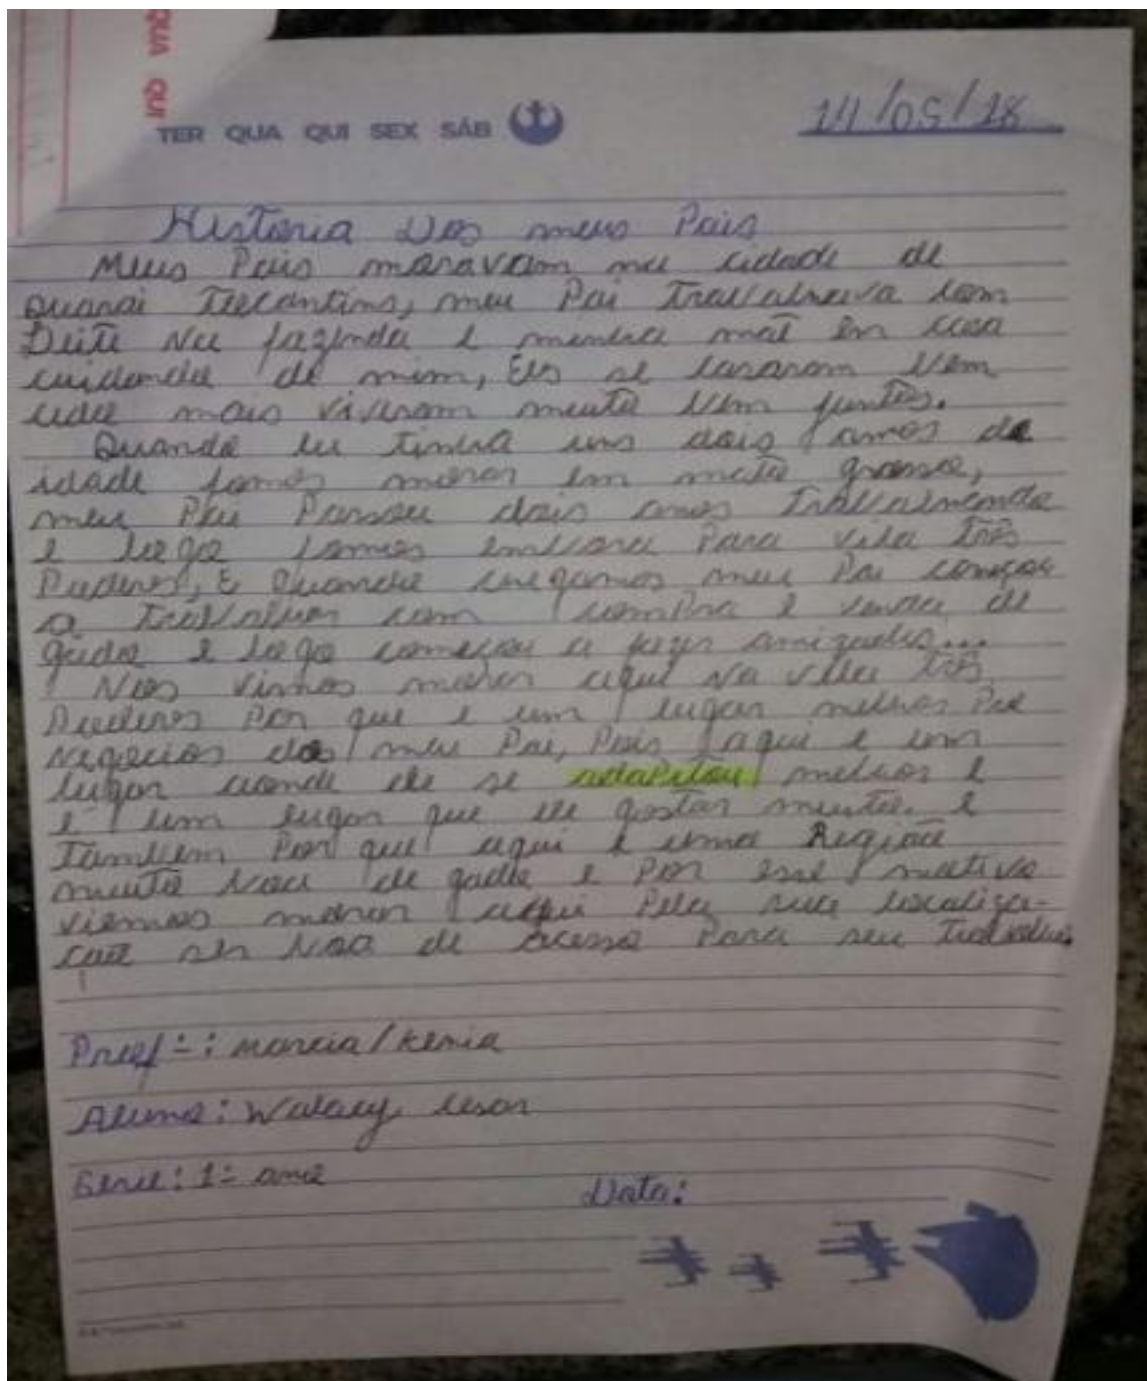 QUA QUI
TER QUA QUI SEX SÁB
14/05/18
Historia Dos meus Pais
Meus Pais moravam na cidade de
Guarai Tocantins, meu Pai Trabalhava com
Leite Na fazenda e minha mãe em casa
cuidando de mim, Eles se casaram bem
cedo mais viveram muito bem juntos.
Quando eu tinha uns dois anos de
idade fomos morar em mato grosso,
meu Pai Passou dois anos Trabalhando
e logo fomos embora Para vila Três
Poderes, E Quando chegamos meu Pai começou
a Trabalhar com compra e venda de
gado e logo começou a fazer amizades...
Nos vimos morar aqui Na vila Três
Poderes Por que e um lugar melhor Pra
Negocios do meu Pai, Pois aqui e um
lugar aonde ele se adapitou melhor e
e um lugar que ele gostar muito. e
Também Por que aqui é uma Região
muito boa de gado e Por esse motivo
viemos morar aqui Pela sua localiza-
cão ser boa de acesso Para seu Trabalho.
Prof-: marcia/kenia
Aluno: Walacy, cesar
Serie: 1- ano
Data: